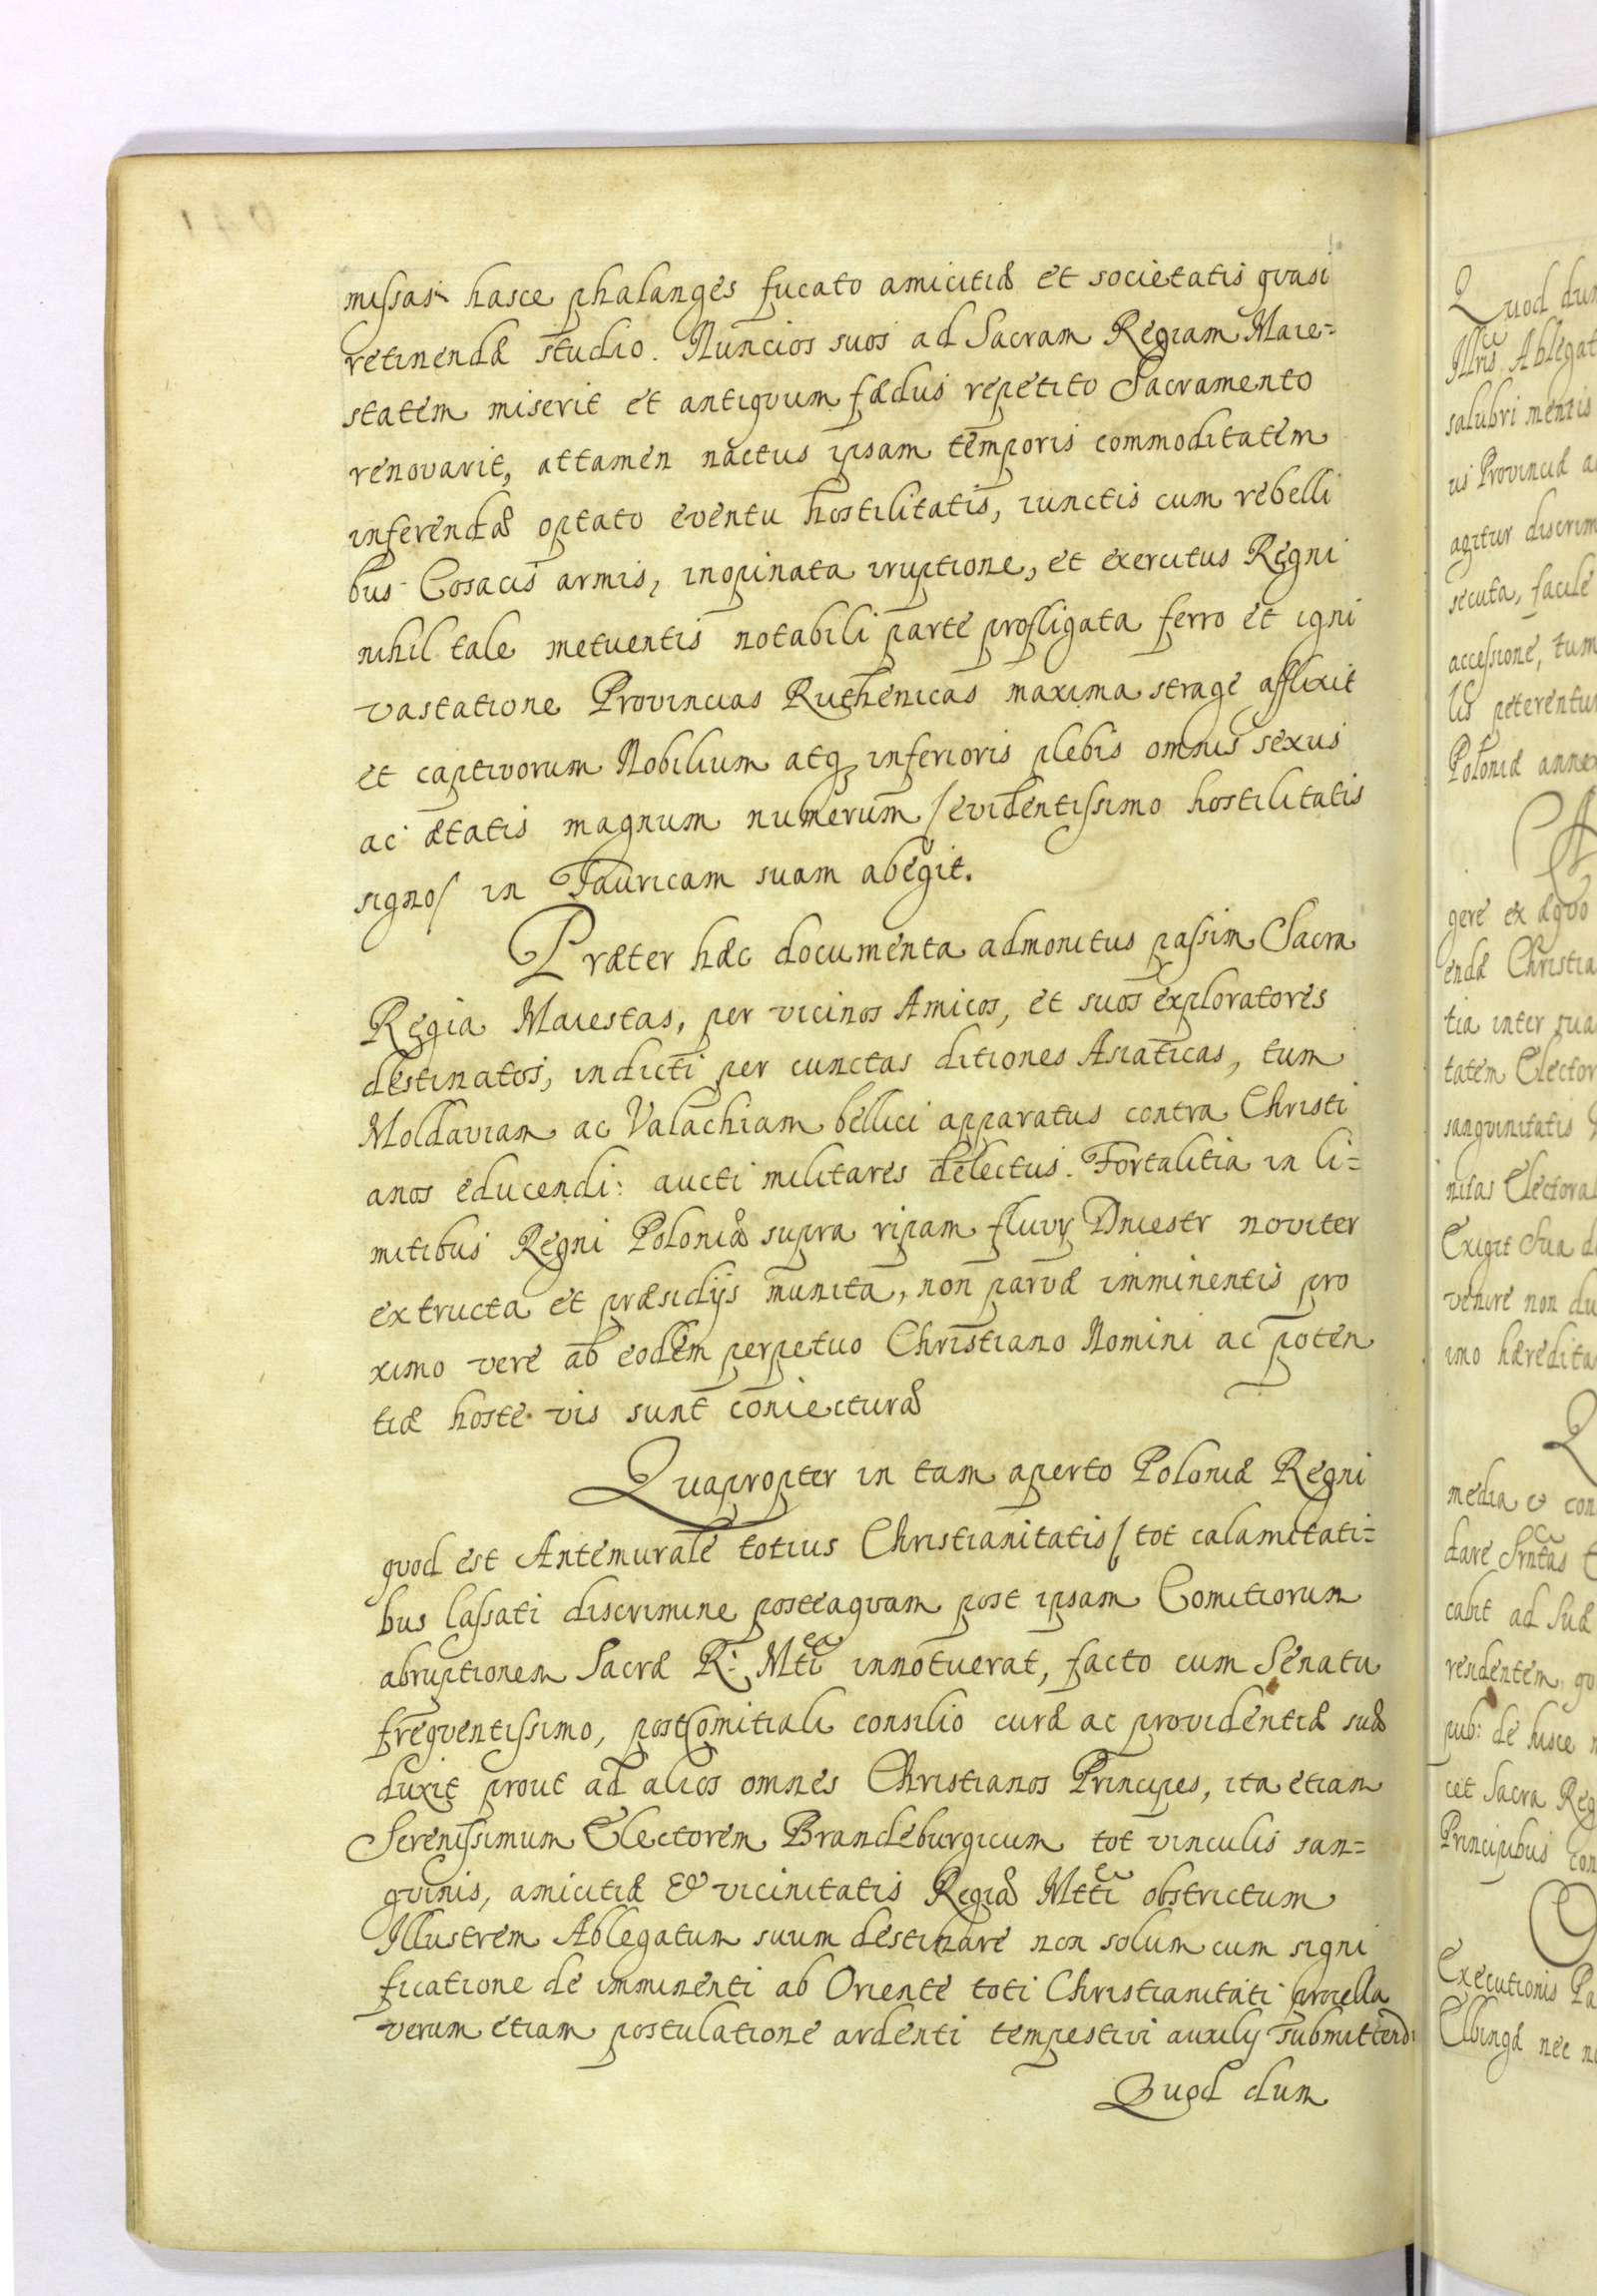 missas hasce phalanges fucato amicitiæ et societatis quasi
retinendæ studio. Nuncios suos ad Sacram Regiam Maie=
statem miserit et antiquum fædus repetito Sacramento
renovarit, attamen nactus ipsam temporis commoditatem
inferendæ optato eventu hostilitatis, iunctis cum rebelli
bus Cosacis armis, inopinata iruptione, et exercitus Regni
nihil tale metuentis notabili parte profligata ferro et igni
vastatione Provincias Ruthenicas maxima strage afflixit
et captivorum Nobilium atq inferioris plebis omnis sexus
ac ætatis magnum numerum / evidentissimo hostilitatis
signo / in Tauricam suam abegit.
Præter hæc documenta admonitus passim Sacra
Regia Maiestas, per vicinos Amicos, et suos exploratores
destinatos, indicti per cunctas ditiones Asiaticas, tum
Moldaviam ac Valachiam bellici apparatus contra Christi
anos educendi: aucti militares delectus. Fortalitia in li=
mitibus Regni Poloniæ supra ripam fluvy Dniestr noviter
extructa et præsidijs munita, non parvæ imminentis pro
ximo vere ab eodem perpetuo Christiano Nomini ac poten
tiæ hoste vis sunt coniecturæ
Quapropter in tam aperto Poloniæ Regni
quod est Antemurale totius Christianitatis / tot calamitati=
bus lassati discrimine posteaquam post ipsam Comitiorum
abruptionem Sacræ R: Mtti ea innotuerat, facto cum Senatu
frequentissimo, postComitiali consilio curæ ac providentiæ suæ
duxit prout ad alios omnes Christianos Principes, ita etiam
Serenissimum Electorem Brandeburgicum tot vinculis san=
guinis, amicitiæ & vicinitatis Regiæ Mtti obstrictum
Illustrem Ablegatum suum destinare non solum cum signi
ficatione de imminenti ab Oriente toti Christianitati procella
verum etiam postulatione ardenti tempestivi auxily submittendi
Quod dum
Quod dum
Illris Ablegat
salubri mentis
us Provinciæ a
agitur discrim
secuta, facile
accessione, tum
lis peterentur
Poloniæ annex
gere ex æquo
endæ Christia
tia inter sua
tatem Elector
sanguinitatis
nitas Electoral
Exigit Sua d
venire non du
imo hæredita
media & con
dare Srntas
cabit ad Suæ
rendentem qu
pub: de hisce
cet Sacra Reg
Principibus con
Executionis Pa
Elbingæ nec n